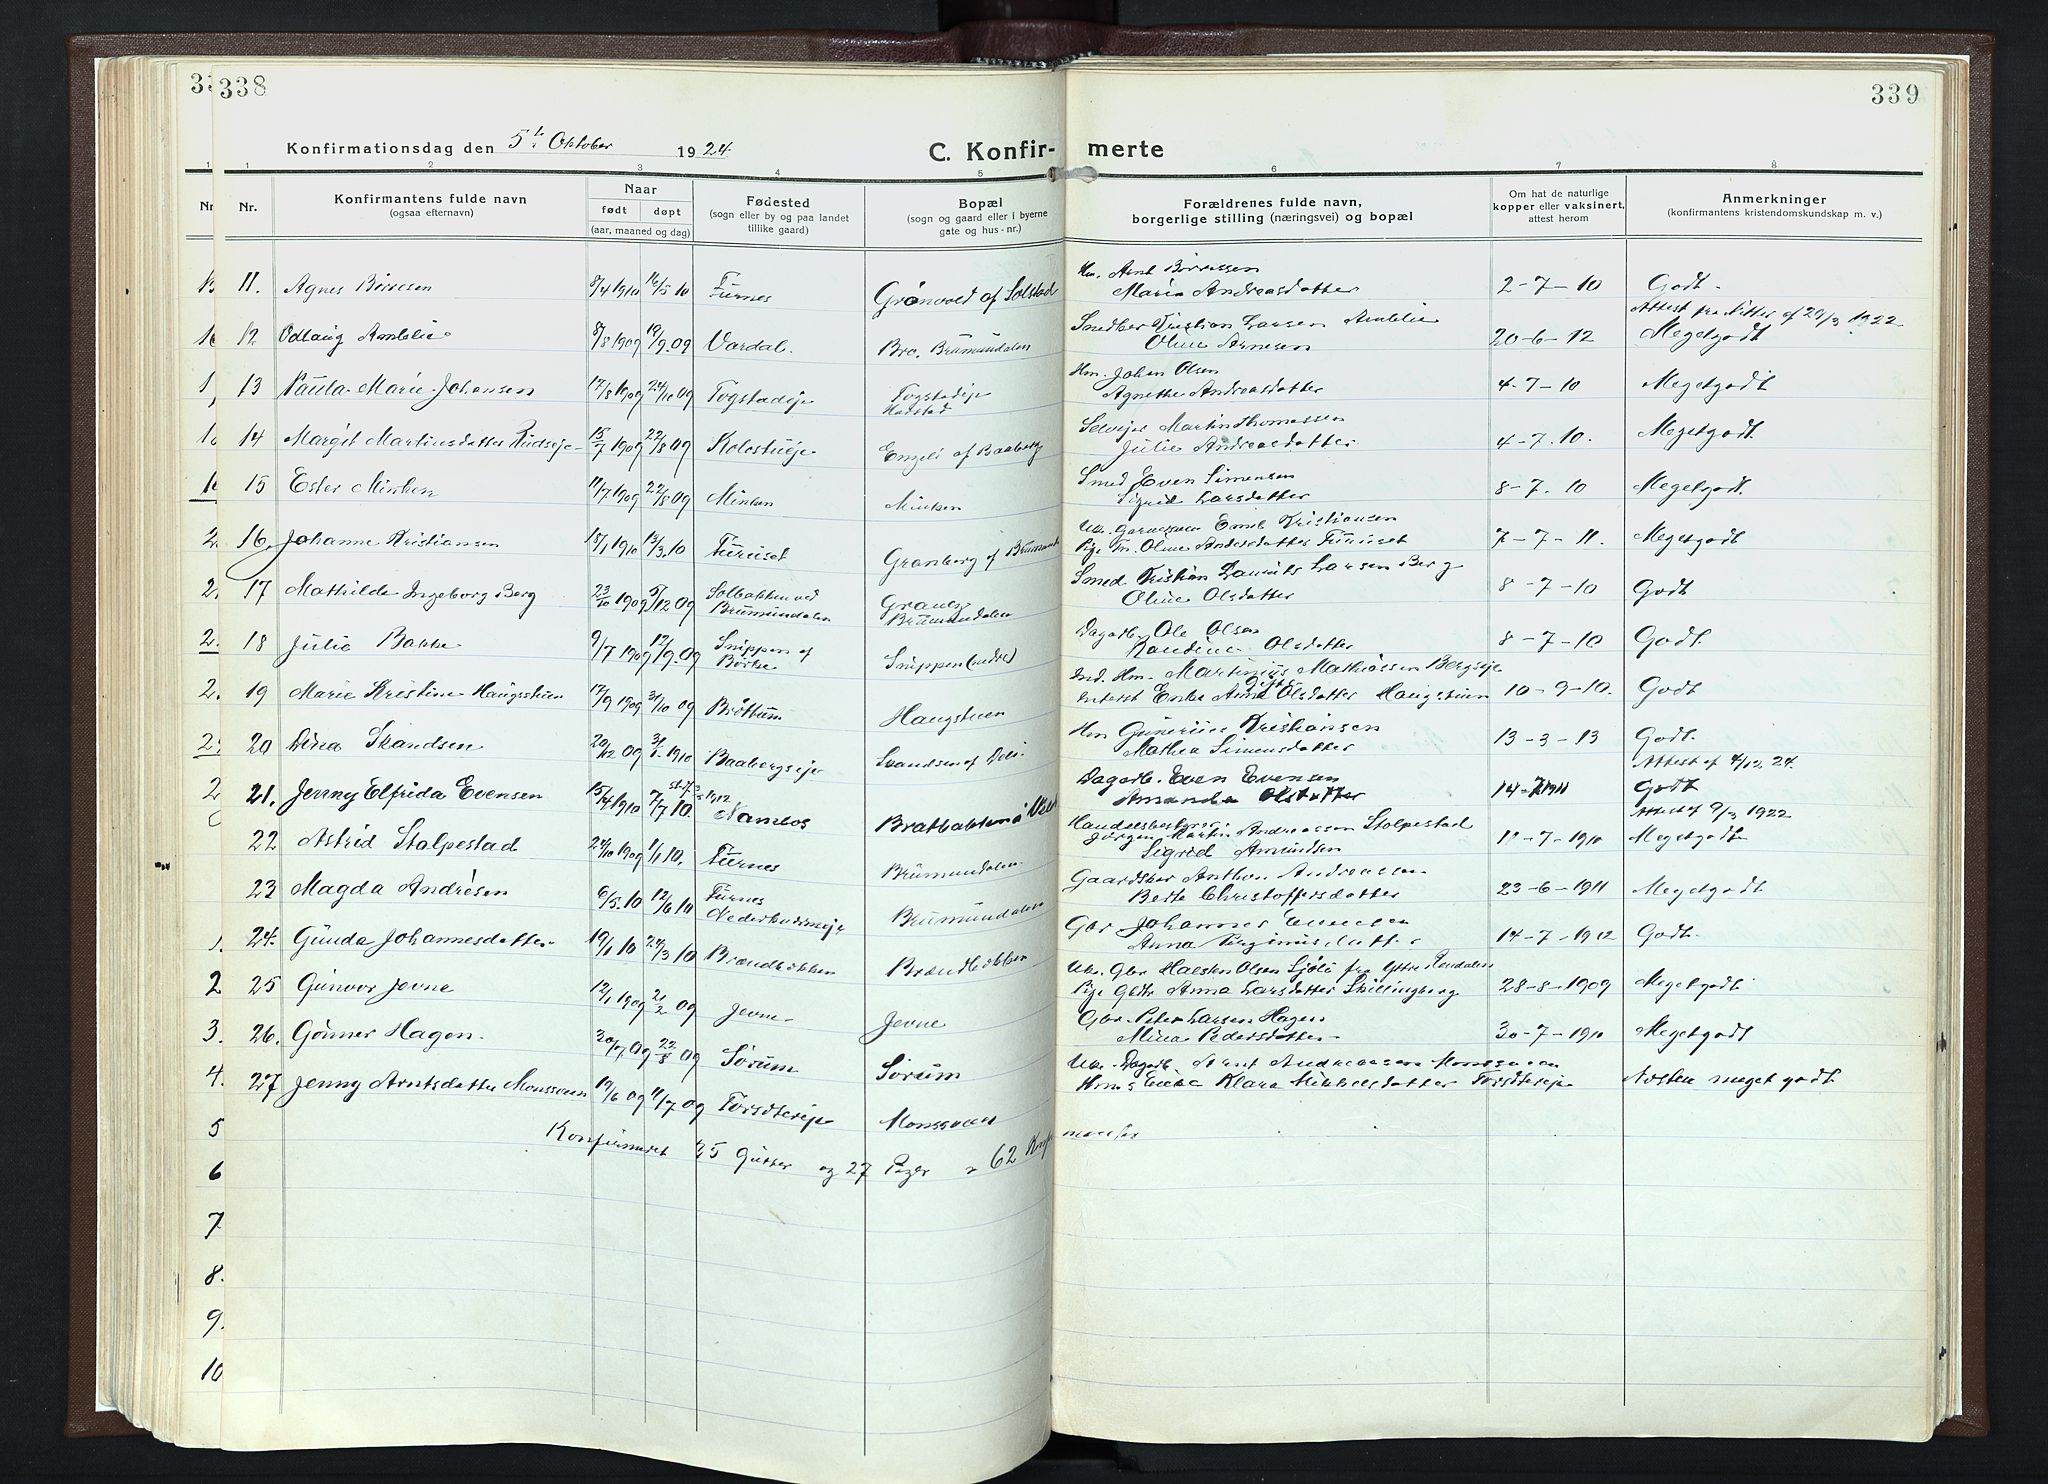 338
339
Konfirmationsdag den 5te Oktober 1924.
C. Konfirmerte
1 2 3 4 5 6 7 8
Nr. Konfirmantens fulde navn (ogsaa efternavn) Naar født døpt (aar, maaned og dag) Fødested (sogn eller by og paa landet tillike gaard) Bopæl (sogn og gaard eller i byerne gate og hus-nr.) Forældrenes fulde navn, borgerlige stilling (næringsvei) og bopæl Om hat de naturlige kopper eller vaksinert, attest herom Anmerkninger (konfirmantens kristendomskundskap m. v.)
11. Agnes Børresen 8/4 1910 16/5 10 Furnes Grønvold af Solstad Hm. Arnt Børresen Maria Andreasdatter 2-7-10 Godt.
12. Odlaug Amblie 8/8 1909 19/9. 09 Vardal. Bro. Brumundalen Kristian Larsen Amblie Oline Arnesen 20-6-12 Attest fra Nitter af 29/3 1922 Megetgodt
13 Paula Marie Johansen 17/8 1909 24/10 09 Fogstadeje Fogstadeje Hm. Johan Olsen Agnethe Andreasdatter 4-7-10 Megetgodt
14 Margit Martinsdatter Rudseje 15/7 1909 22/8 09 Kolostueje Engeli af Baaberg Selvejer Martin Thomassen Julie Andreasdatter 4-7. 10. Megetgodt.
15 Ester Minken 11/7 1909 22/8 09 Minken Minken Smed Even Simensen Sigrid Larsdatter 8-7. 10 Megetgodt.
16. Johanne Kristiansen 15/1 1910 13/3. 10 Furuset Granberg af Brumund Uk. Emil Kristiansen Pige Oline Andersdatter Furuset 7-7-11. Megetgodt
17 Mathilde Ingeborg Berg 23/10 1909 5/12 09 Solbakken ved Brumundalen Brumundalen Smed Kristian Laurits Larsen Berg Oline Olsdatter 8-7-10 Godt
18 Julie Bakke 9/7 1909 12/9. 09 Snippen af Börke Snippen (nedre) Dagarb. Ole Olsen Randine Olsdatter 8-7-10 Godt.
19 Marie Kristine Haugsstuen 17/9 1909 31/10 09 Brøttum Haugstuen Ind. Hm. Martinius Mathiassen Bergseje Inderst Enke Anna Olsdatter Haugstuen 10-9-10. Godt
20 Dina Skandsen 20/12 09 31/1. 1910 Baabergseje Hm Gunerius Kristiansen Mathea Simensdatter 13-3-13 Godt.
21. Jenny Elfrida Evensen 15/4 1910 7/7 10. Namsos Bratbakken i Dagarb. Even Evensen Amanda Olsdatter 14-7 1911 Attest af 4/12 24. Godt
22 Astrid Stolpestad 29/10 1909 1/1 10. Furnes Brumundalen. Handelsbestyrer Jørgen Martin Andreassen Stolpestad Sigrid Amundsen 11-7-1910 Attest af 9/3 1922 Megetgodt
23 Magda Andrésen 6/5. 10 12/6 10 Furnes Nederkvernseje Brumundalen Gaardsker Anthon Andreassen Berte Christoffersdatter 23-6-1911 Megetgodt
24. Gunda Johannesdatter 19/1 10 27/3 10 Brændbækken Brændbækken Gbr Johannes Evensen Anna 14-7-1912 Godt.
25 Gunvor Jevne 12/1 1909 21/2 09 Jevne. Jevne Uk. Gbr Halsten Olsen Sjøli fra Yttre Rendalen Pige Gdtr Anna Larsdatter Skillingberg 28-8-1909 Megetgodt
26. Gunner Hagen. 20/7. 09 22/8 09 Sørum Sørum Gbr. Peter Larsen Hagen Mina Pedersdatter 30-7-1910 Megetgodt
27 Jenny Arntsdatter Monssveen 19/6 09 11/7 09 Torsdterieje Monssveen Uk. Dagarb. Arnt Andreassen Monssveen Klara Mikkelsdatter Næsten meget godt
Konfirmeret 35 Gutter og 27 Piger = 62 Konfirmanter
1.
2
3.
4.
5
6
7.
8.
9.
10